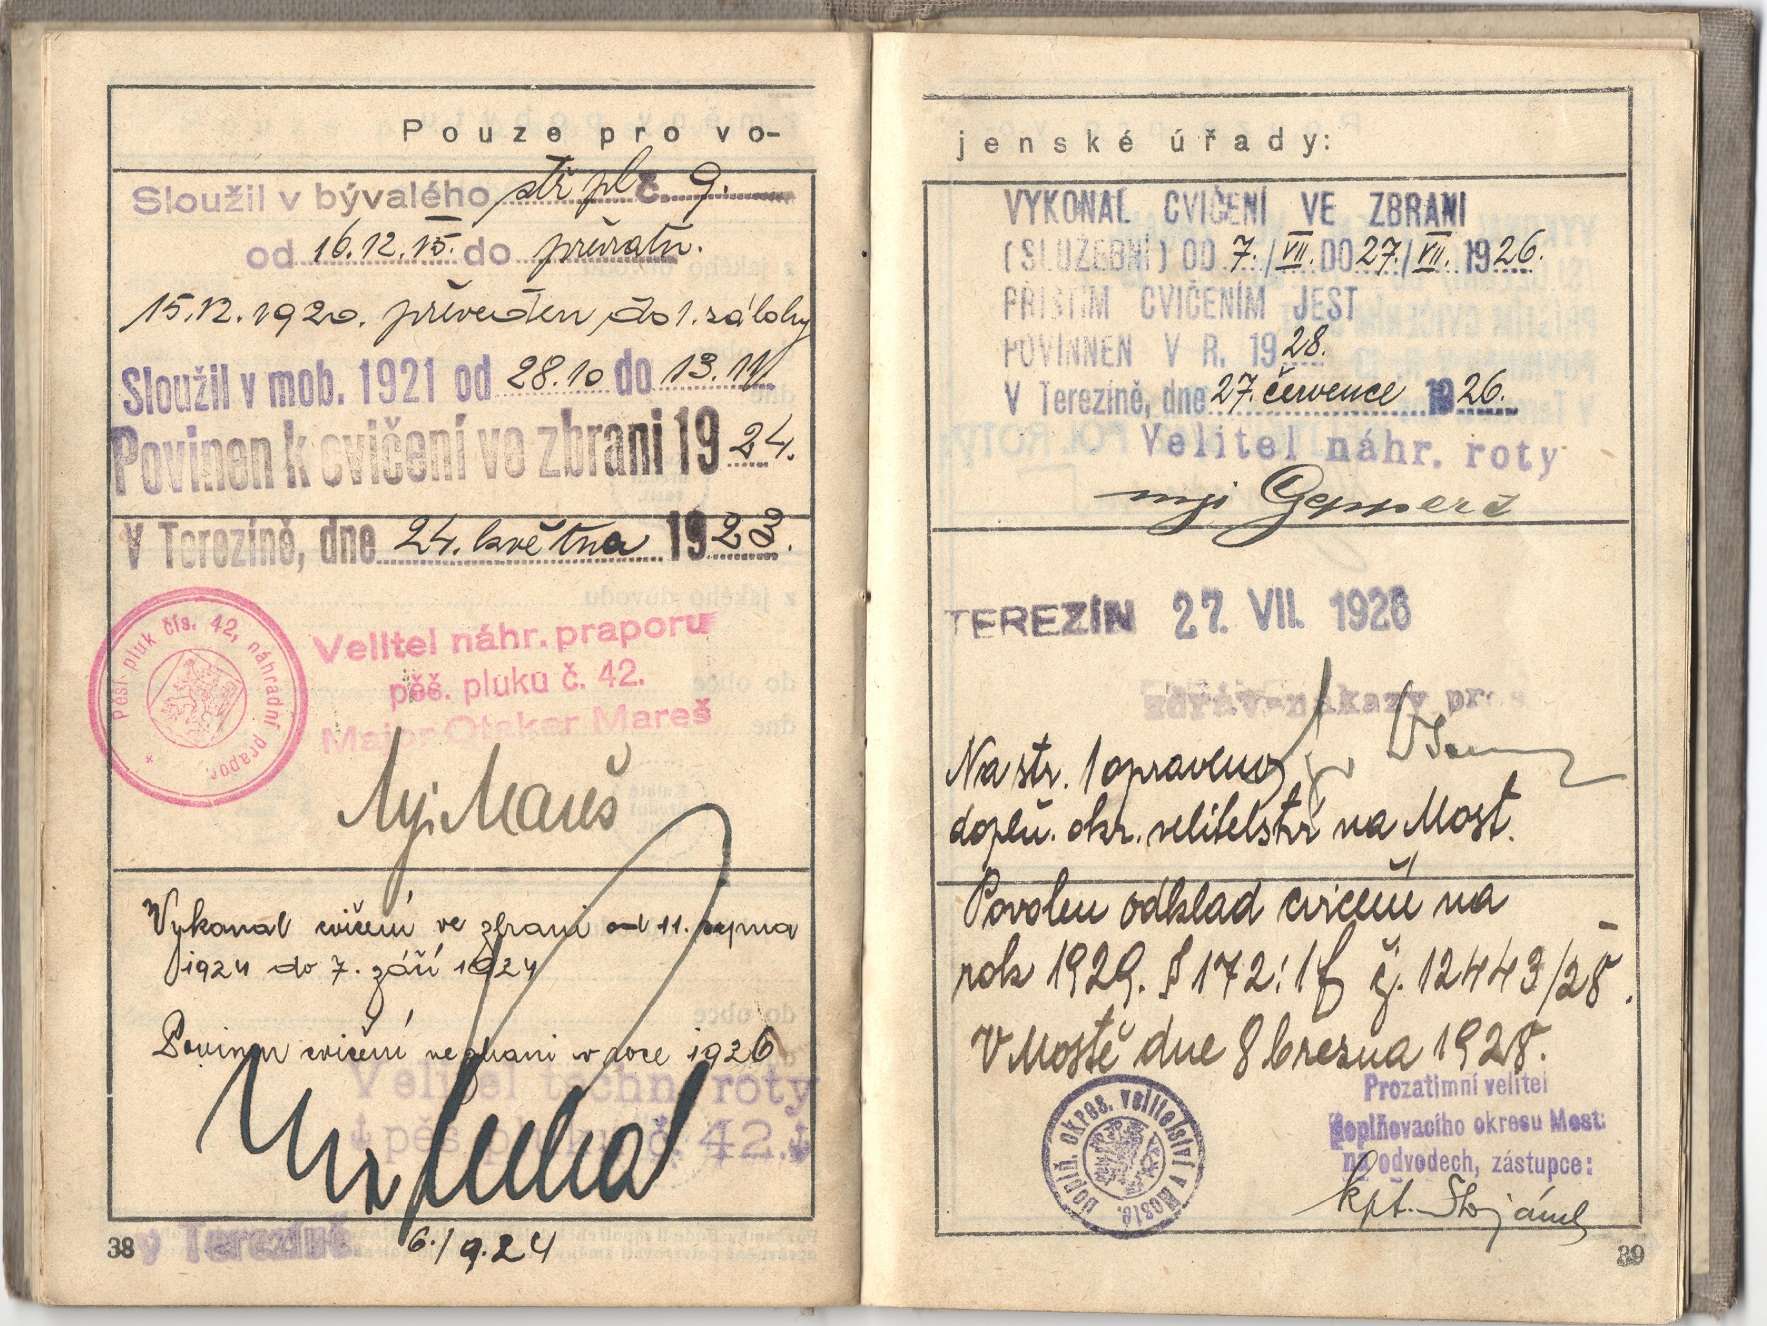 Pouze pro vo-
Sloužil v bývalého stř. pl. č. 9.
od 16.12.15. do převratu.
15.12.1920. převeden do 1. zálohy
Sloužil v mob. 1921 od 28.10 do 13.11
Povinen k cvičení ve zbrani 1924.
V Terezíně, dne 24. května 1923.
Pěší pluk čís. 42, náhradní prapor.
Velitel náhr. praporu
pěš. pluku č. 42.
Major Otakar Mareš
Mjr. Mareš
Vykonal cvičení ve zbrani od 11. srpna
1924 do 7. září 1924
Povinen cvičení ve zbrani v roce 1926
Velitel techn. roty
pěš. pluku č. 42.
v Terezíně 6./9.24
38
jenské úřady:
VYKONAL CVIČENÍ VE ZBRANI
(SLUŽEBNÍ) OD 7./VII. DO 27./VII. 1926.
PŘÍŠTÍM CVIČENÍM JEST
POVINNEN V R. 1928.
V Terezíně, dne 27. července 1926.
Velitel náhr. roty
mjr Geppert
TEREZÍN 27. VII. 1926
zdráv-nákazy pros
Na str. 1 opraveno
doplň. okr. velitelství na Most.
Povolen odklad cvičení na
rok 1929. § 172:1f č. 12443/28.
V Mostě dne 8 března 1928.
Doplň. okres. velitelství v Mostě.
Prozatimní velitel
doplňovacího okresu Most:
na odvodech, zástupce:
kpt.
39